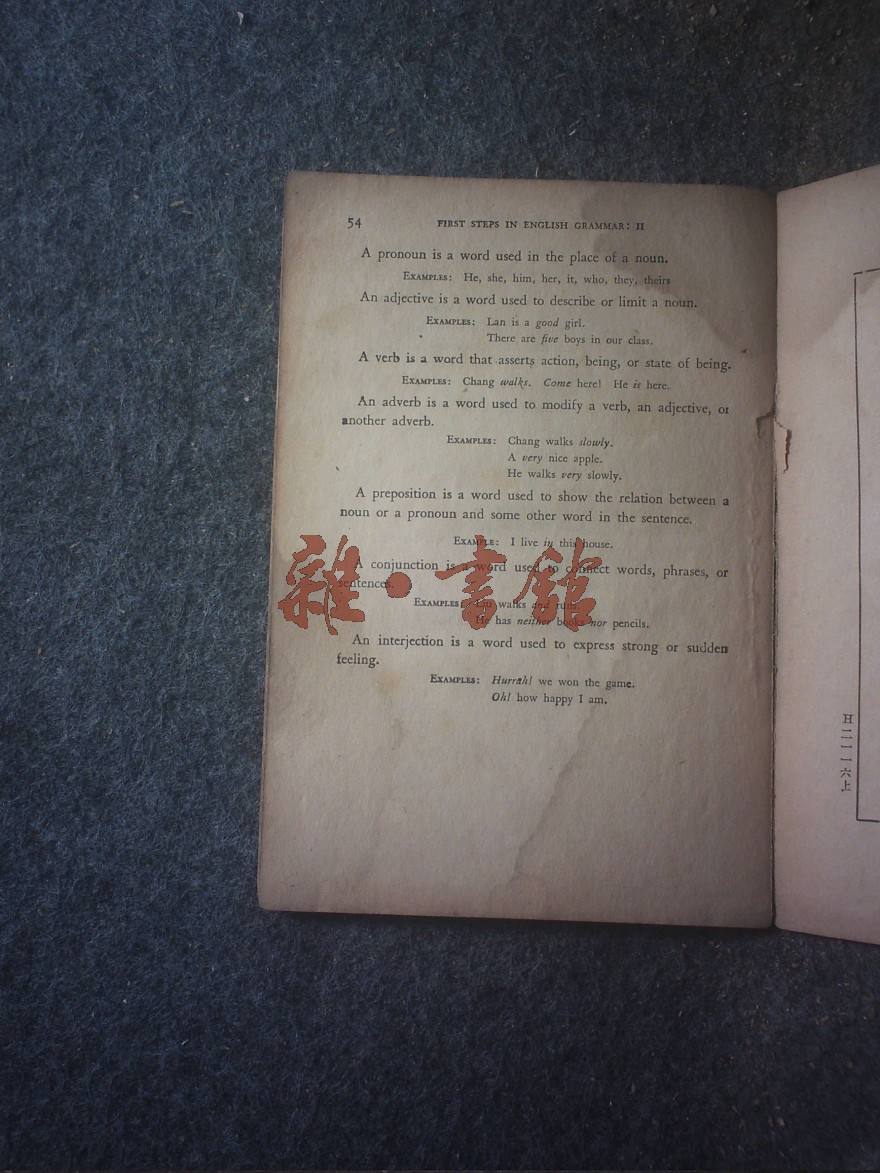 54 FIRST STEPS IN ENGLISH GRAMMAR: II
A pronoun is a word used in the place of a noun.
EXAMPLES: He, she, him, her, it, who, they, theirs
An adjective is a word used to describe or limit a noun.
EXAMPLES: Lan is a good girl.
There are five boys in our class.
A verb is a word that asserts action, being, or state of being.
EXAMPLES: Chang walks. Come here! He is here.
An adverb is a word used to modify a verb, an adjective, or
another adverb.
EXAMPLES: Chang walks slowly.
A very nice apple.
He walks very slowly.
A preposition is a word used to show the relation between a
noun or a pronoun and some other word in the sentence.
EXAMPLE: I live in this house.
A conjunction is a word used to connect words, phrases, or
sentences.
EXAMPLES: walks and runs.
He has neither books nor pencils.
An interjection is a word used to express strong or sudden
feeling.
EXAMPLES: Hurrah! we won the game.
Oh! how happy I am.
雜·書館
H二一一六上